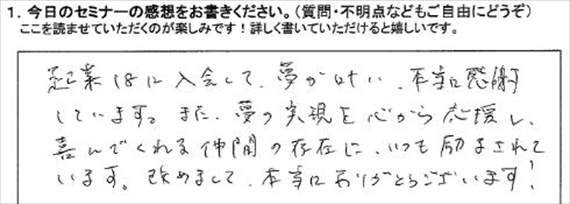 1. 今日のセミナーの感想をお書きください。(質問・不明点などもご自由にどうぞ)
ここを読ませていただくのが楽しみです！詳しく書いていただけると嬉しいです。
起業18に入会して、夢が叶い、本当に感謝
しています。また、夢の実現を心から応援し、
喜んでくれる仲間の存在に、いつも励まされて
います。改めまして、本当にありがとうございます！